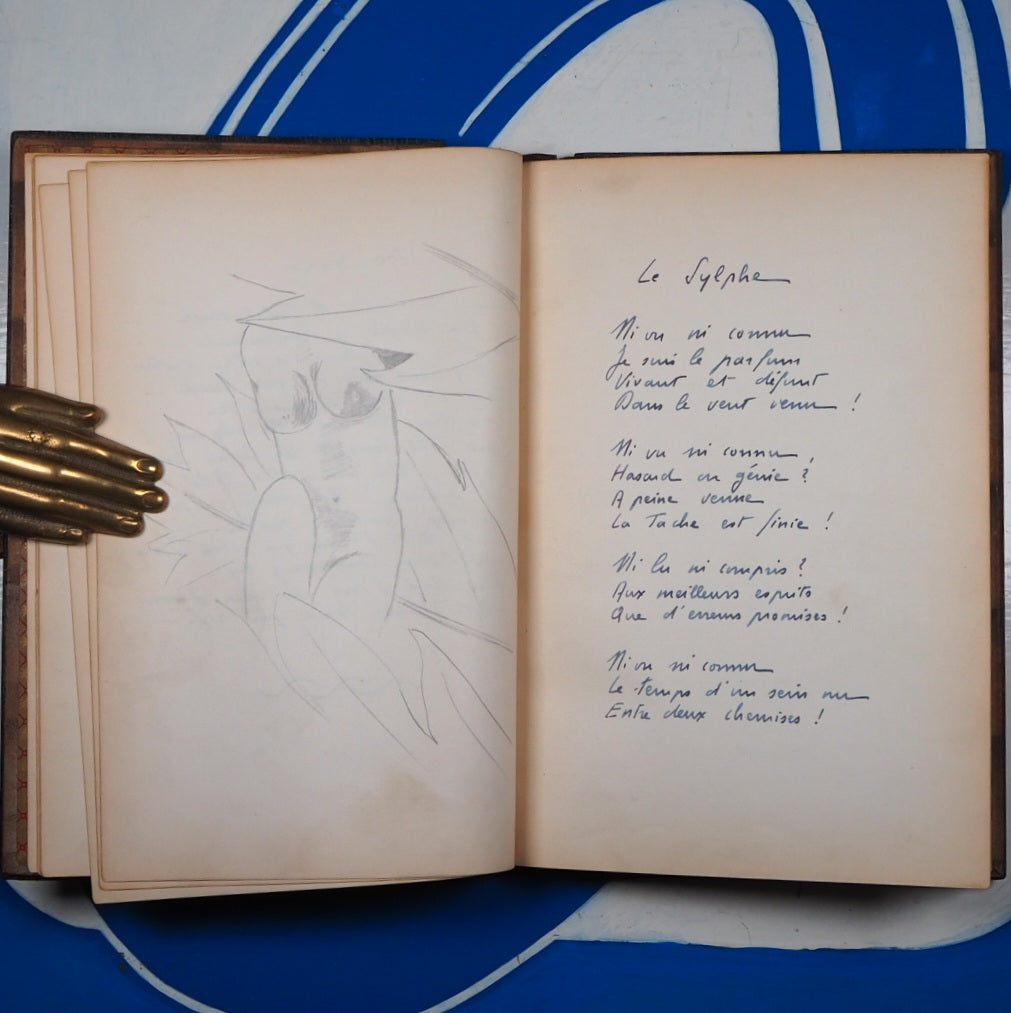 Le Sylphe
Ni vu ni connu
Je suis le parfum
Vivant et défunt
Dans le vent venu !
Ni vu ni connu,
Hasard ou génie ?
A peine venue
La Tache est finie !
Ni lu ni compris ?
Aux meilleurs esprits
Que d'erreurs promises !
Ni vu ni connu
Le temps d'un sein nu
Entre deux chemises !